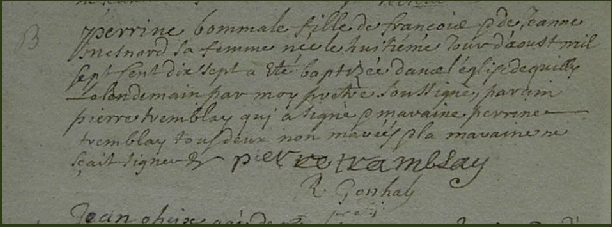 B
perrine bommale fille de francois & de Jeanne
mesnard sa femme née le huitiéme Jour d'aoust mil
sept sent dix sept a été baptizée dans l'église de
Le lendemain par moy prêtre soussigné, parain
pierre tremblay qui à signé & maraine perrine
tremblay tous deux non mariés & la maraine ne
sçait signer
pierre tramblay
R Gonhay
Jean